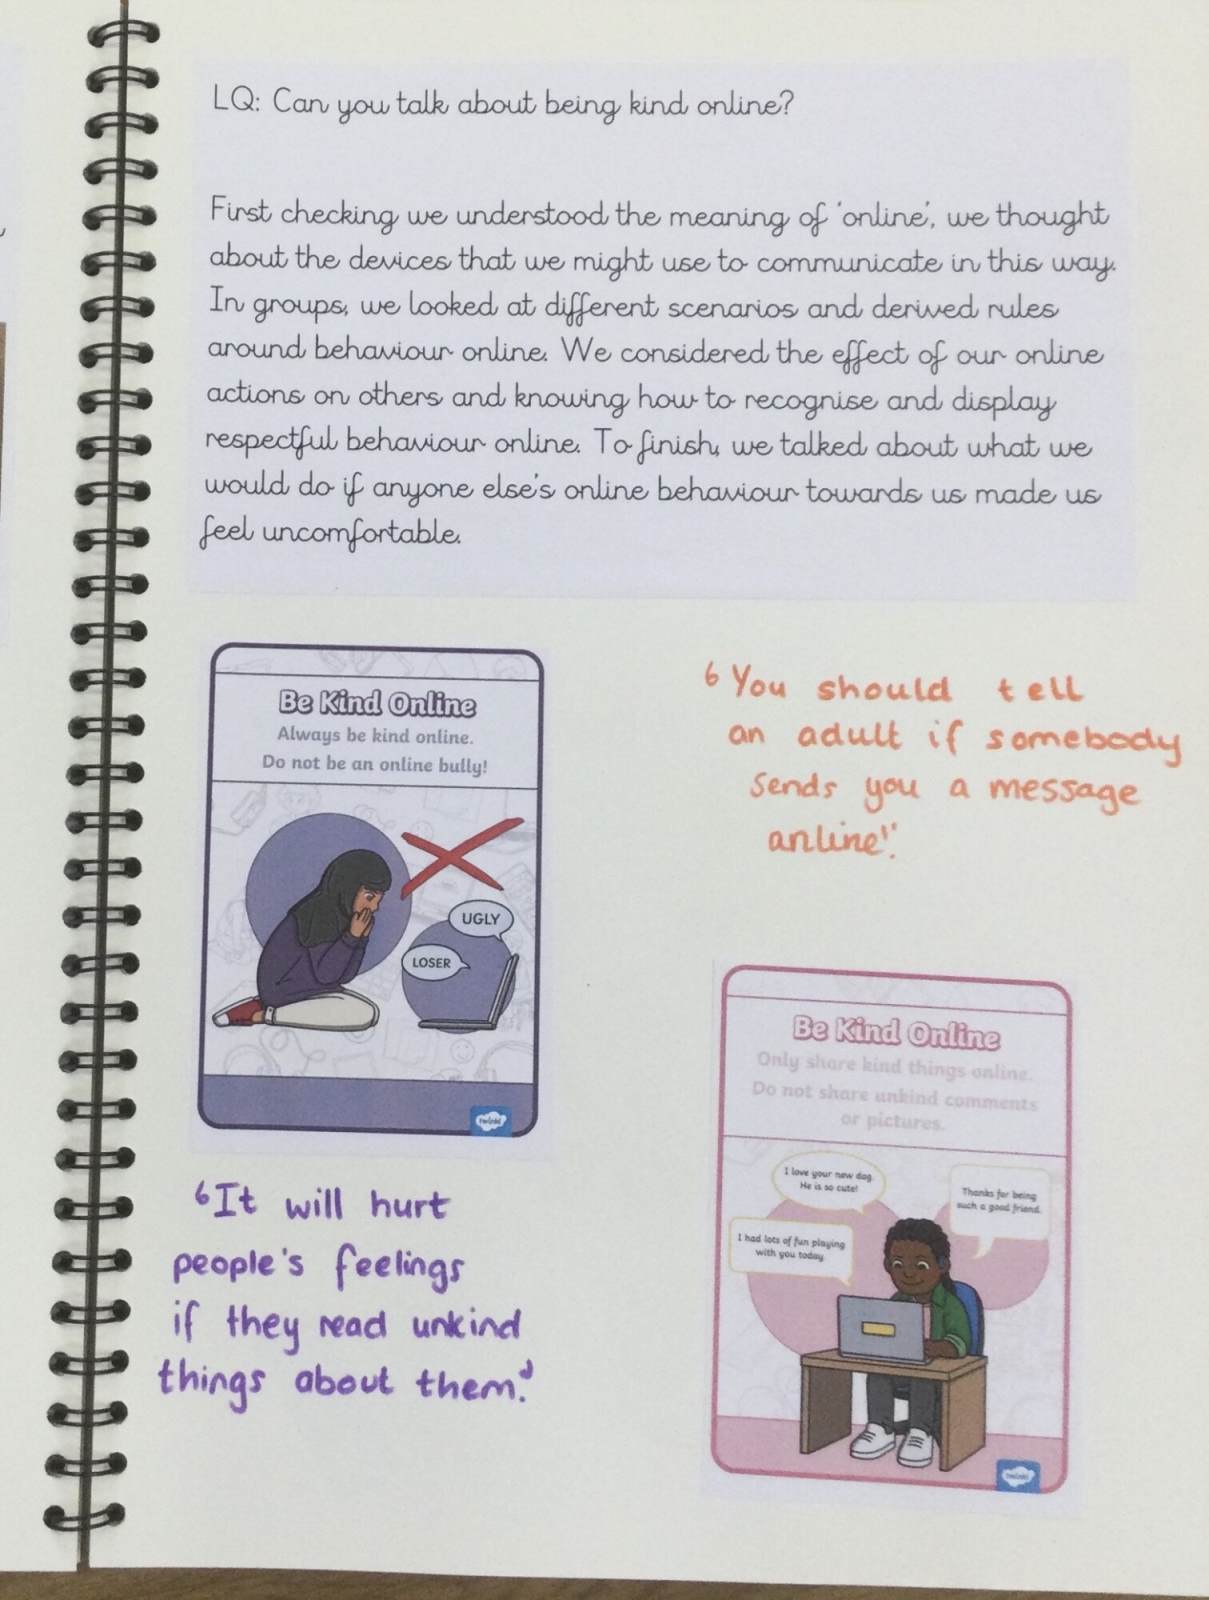 LQ: Can you talk about being kind online?
First checking we understood the meaning of 'online', we thought
about the devices that we might use to communicate in this way.
In groups, we looked at different scenarios and derived rules
around behaviour online. We considered the effect of our online
actions on others and knowing how to recognise and display
respectful behaviour online. To finish, we talked about what we
would do if anyone else's online behaviour towards us made us
feel uncomfortable.
Be Kind Online
Always be kind online.
Do not be an online bully!
UGLY
LOSER
twinkl
'You should tell
an adult if somebody
sends you a message
anline'.
'It will hurt
people's feelings
if they read unkind
things about them.'
Be Kind Online
Only share kind things online.
Do not share unkind comments
or pictures.
I love your new dog.
He is so cute!
Thanks for being
such a good friend.
I had lots of fun playing
with you today.
twinkl